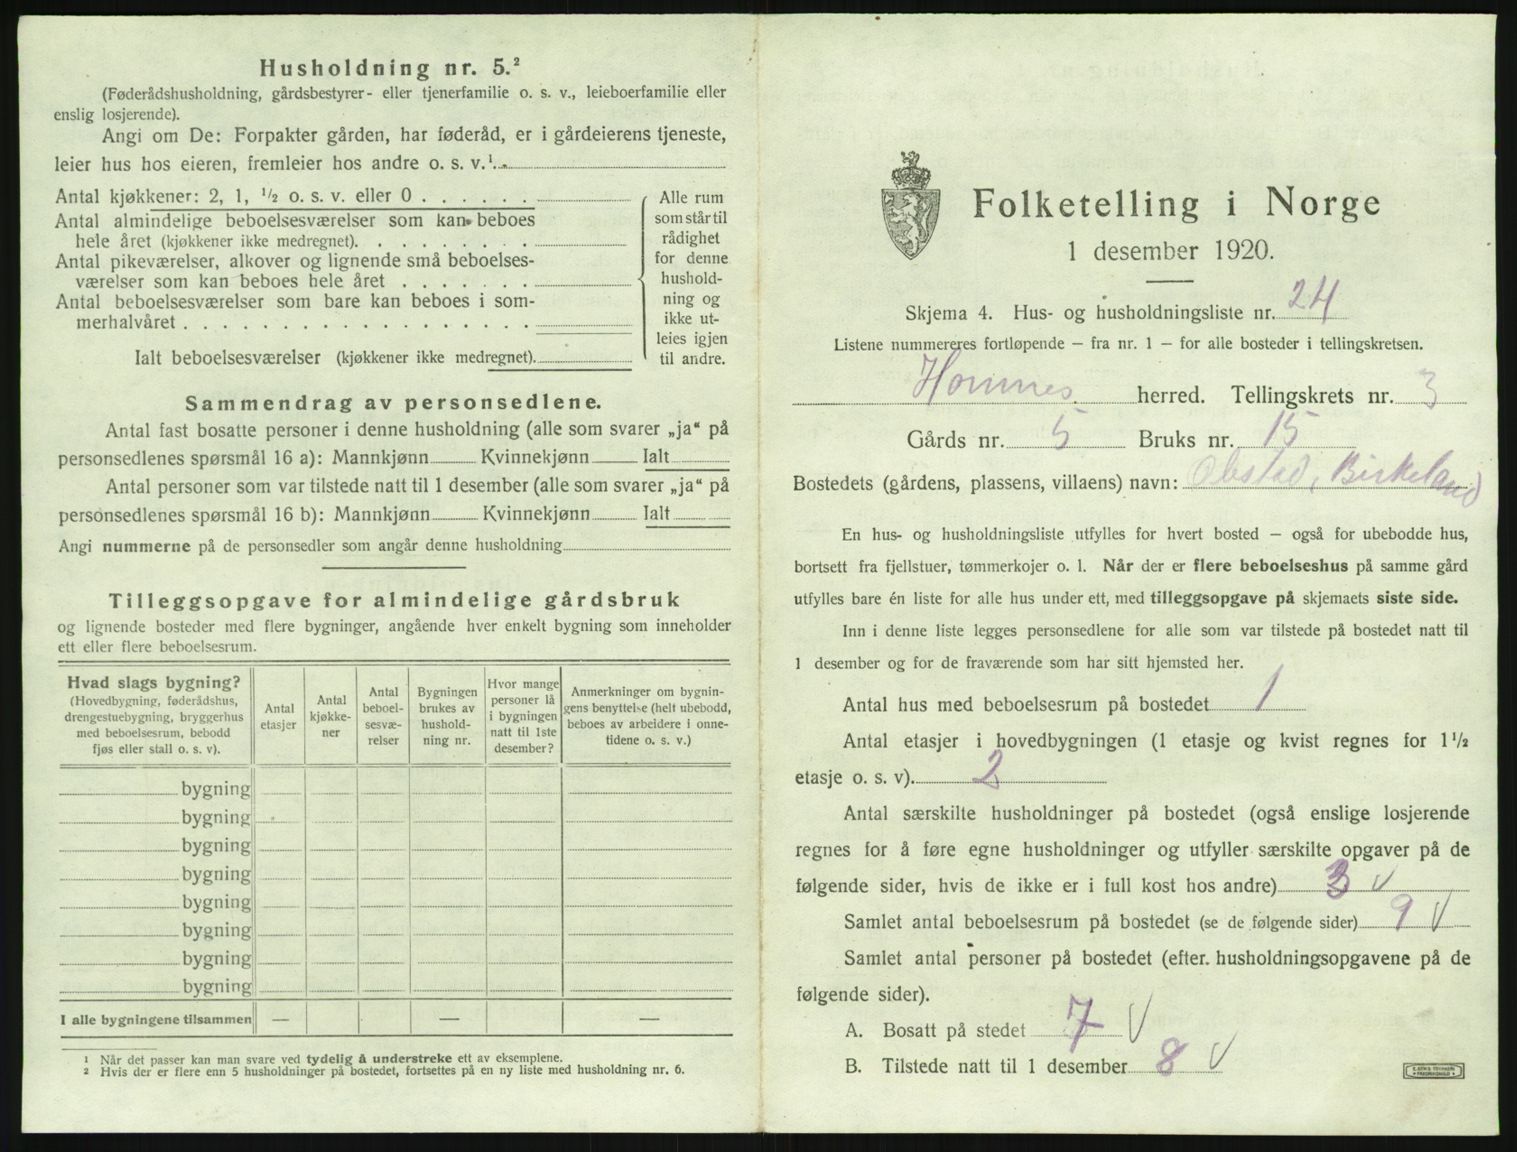 Husholdning nr. 5.²
(Føderådshusholdning, gårdsbestyrer- eller tjenerfamilie o. s. v., leieboerfamilie eller
enslig losjerende).
Angi om De: Forpakter gården, har føderåd, er i gårdeierens tjeneste,
leier hus hos eieren, fremleier hos andre o. s. v.¹
Antal kjøkkener: 2, 1, ½ o. s. v. eller 0 . . . . . .
Antal almindelige beboelsesværelser som kan beboes
hele året (kjøkkener ikke medregnet). . . . . . . . .
Antal pikeværelser, alkover og lignende små beboelses-
værelser som kan beboes hele året . . . . . . .
Antal beboelsesværelser som bare kan beboes i som-
merhalvåret . . . . . . . . . . . . . . . . . .
Ialt beboelsesværelser (kjøkkener ikke medregnet).
Alle rum
som står til
rådighet
for denne
hushold-
ning og
ikke ut-
leies igjen
til andre.
Sammendrag av personsedlene.
Antal fast bosatte personer i denne husholdning (alle som svarer „ja“ på
personsedlenes spørsmål 16 a): Mannkjønn Kvinnekjønn Ialt
Antal personer som var tilstede natt til 1 desember (alle som svarer „ja“ på
personsedlenes spørsmål 16 b): Mannkjønn Kvinnekjønn Ialt
Angi nummerne på de personsedler som angår denne husholdning
Tilleggsopgave for almindelige gårdsbruk
og lignende bosteder med flere bygninger, angående hver enkelt bygning som inneholder
ett eller flere beboelsesrum.
Hvad slags bygning?
(Hovedbygning, føderådshus,
drengestuebygning, bryggerhus
med beboelsesrum, bebodd
fjøs eller stall o. s. v).
Antal
etasjer
Antal
kjøkke-
ner
Antal
beboel-
sesvæ-
relser
Bygningen
brukes av
hushold-
ning nr.
Hvor mange
personer lå
i bygningen
natt til 1ste
desember?
Anmerkninger om bygnin-
gens benyttelse (helt ubebodd,
beboes av arbeidere i onne-
tidene o. s. v.)
bygning
bygning
bygning
bygning
bygning
bygning
bygning
bygning
I alle bygningene tilsammen — — —
¹ Når det passer kan man svare ved tydelig å understreke ett av eksemplene.
² Hvis der er flere enn 5 husholdninger på bostedet, fortsettes på en ny liste med husholdning nr. 6.
Folketelling i Norge
1 desember 1920.
Skjema 4. Hus- og husholdningsliste nr. 24
Listene nummereres fortløpende — fra nr. 1 — for alle bosteder i tellingskretsen.
Homnes herred. Tellingskrets nr. 3
Gårds nr. 5 Bruks nr. 15
Bostedets (gårdens, plassens, villaens) navn: Obstad, Birkeland
En hus- og husholdningsliste utfylles for hvert bosted — også for ubebodde hus,
bortsett fra fjellstuer, tømmerkojer o. l. Når der er flere beboelseshus på samme gård
utfylles bare én liste for alle hus under ett, med tilleggsopgave på skjemaets siste side.
Inn i denne liste legges personsedlene for alle som var tilstede på bostedet natt til
1 desember og for de fraværende som har sitt hjemsted her.
Antal hus med beboelsesrum på bostedet 1
Antal etasjer i hovedbygningen (1 etasje og kvist regnes for 1½
etasje o. s. v). 2
Antal særskilte husholdninger på bostedet (også enslige losjerende
regnes for å føre egne husholdninger og utfyller særskilte opgaver på de
følgende sider, hvis de ikke er i full kost hos andre) 3 √
Samlet antal beboelsesrum på bostedet (se de følgende sider) 9 √
Samlet antal personer på bostedet (efter husholdningsopgavene på de
følgende sider).
A. Bosatt på stedet 7 √
B. Tilstede natt til 1 desember 8 √